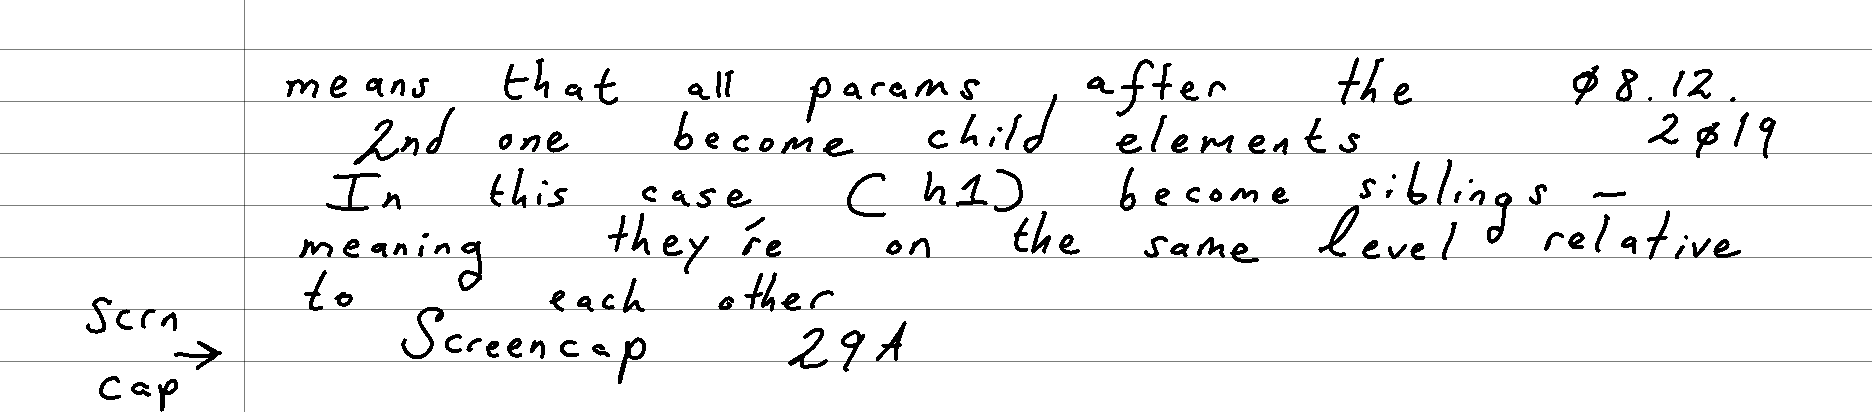 means that all params, after the ø8.12.
2nd one become child elements 2ø19
In this case (h1) become siblings -
meaning they're on the same level relative
to each other
Scrn
→ Screencap 29A
cap